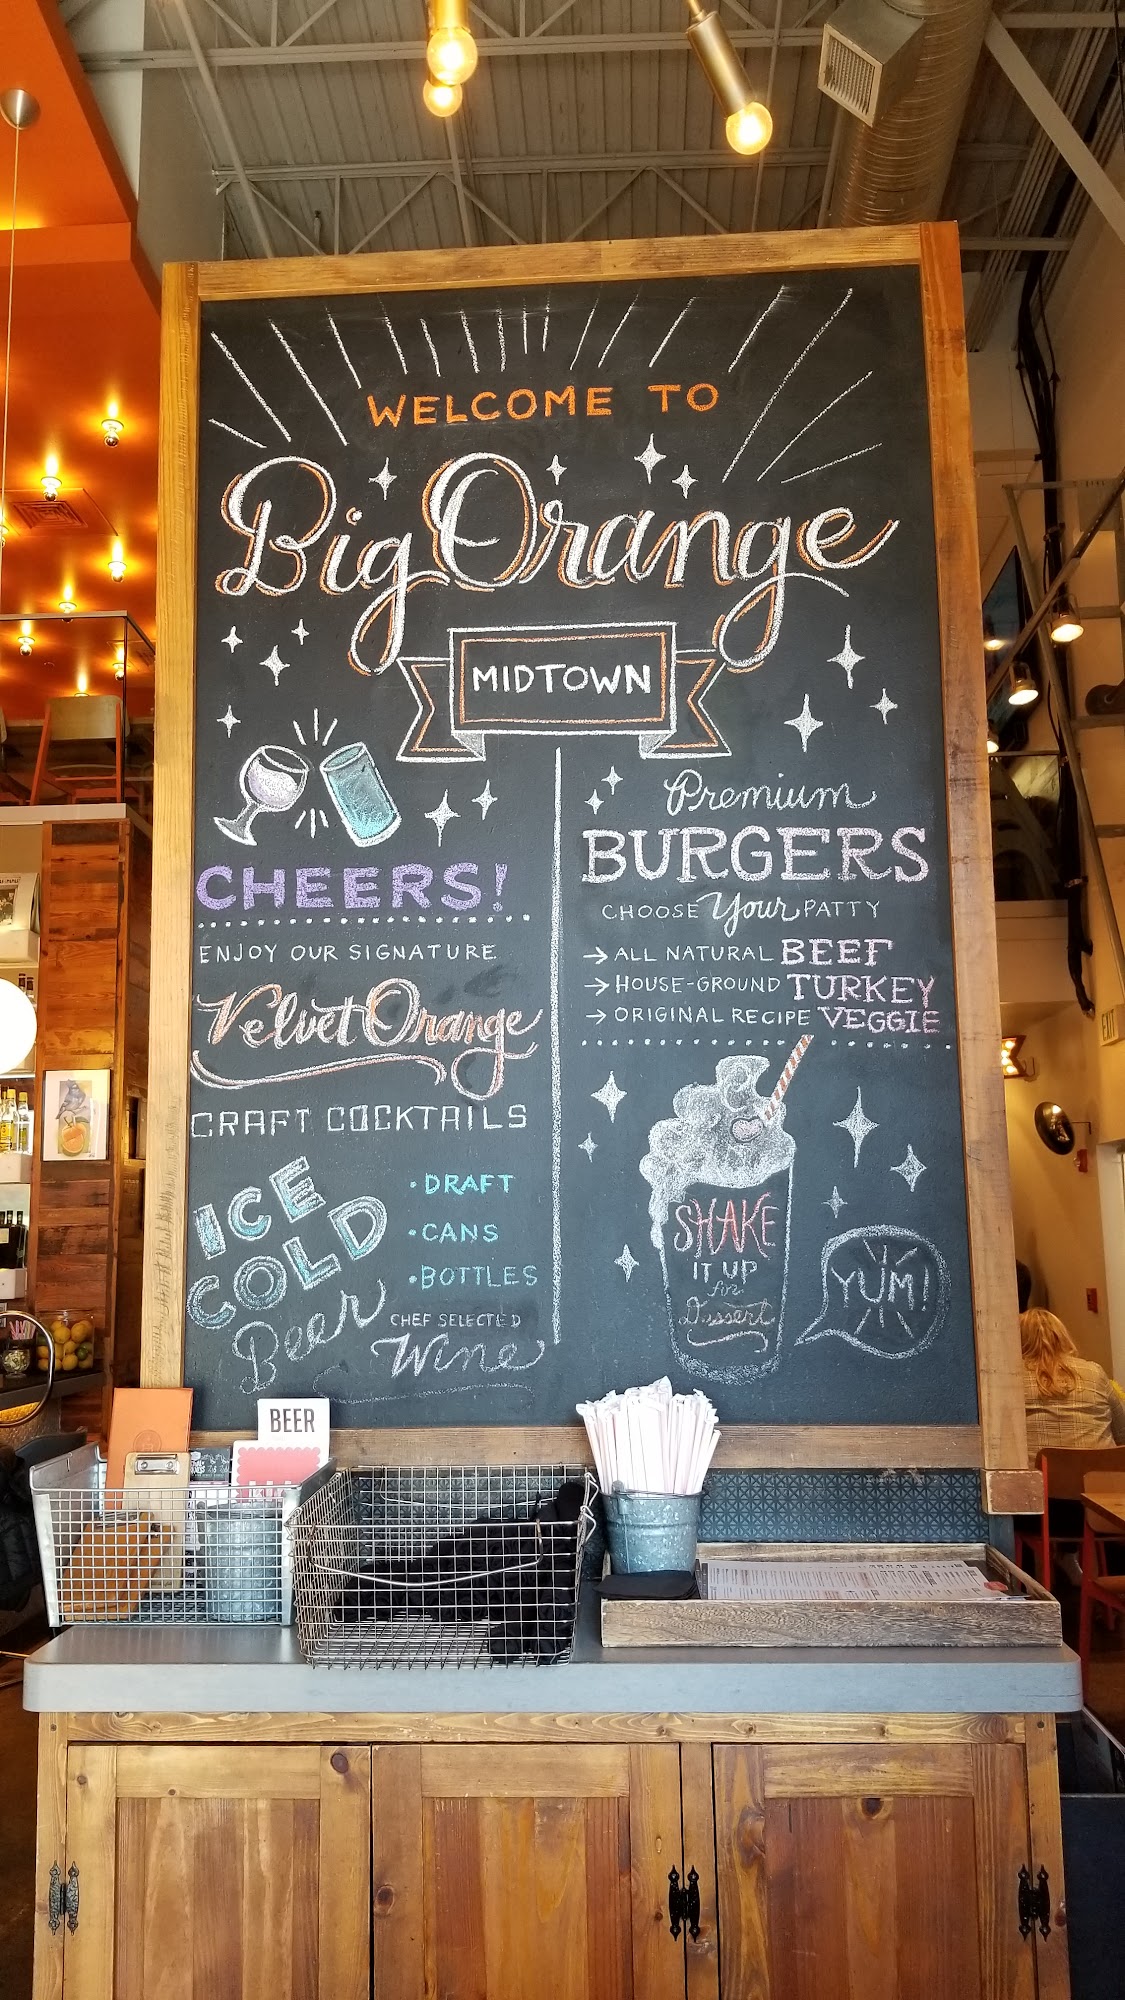 WELCOME TO
Big Orange
MIDTOWN
CHEERS!
ENJOY OUR SIGNATURE
Velvet Orange
CRAFT COCKTAILS
ICE
COLD
Beer
• DRAFT
• CANS
• BOTTLES
CHEF SELECTED
Wine
Premium
BURGERS
CHOOSE Your PATTY
→ ALL NATURAL BEEF
→ HOUSE-GROUND TURKEY
→ ORIGINAL RECIPE VEGGIE
SHAKE
IT UP
for
Dessert
YUM!
BEER
EXIT